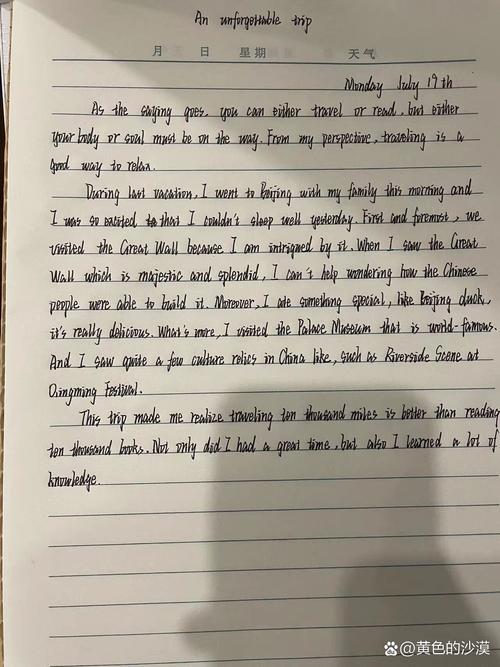 An unforgettable trip
月 日 星期 天气
Monday July 19th
As the saying goes, you can either travel or read, but either
your body or soul must be on the way. From my perspective, traveling is a
good way to relax.
During last vacation, I went to Beijing with my family this morning and
I was so excited that I couldn't sleep well yesterday. First and foremost, we
visited the Great Wall because I am intrigued by it. When I saw the Great
Wall which is majestic and splendid, I can't help wondering how the Chinese
people were able to build it. Moreover, I ate something special, like Beijing duck,
it's really delicious. What's more, I visited the Palace Museum that is world-famous.
And I saw quite a few culture relics in China like, such as Riverside Scene at
Qingming Festival.
This trip made me realize traveling ten thousand miles is better than reading
ten thousand books. Not only did I had a great time, but also I learned a lot of
knowledge.
@黄色的沙漠